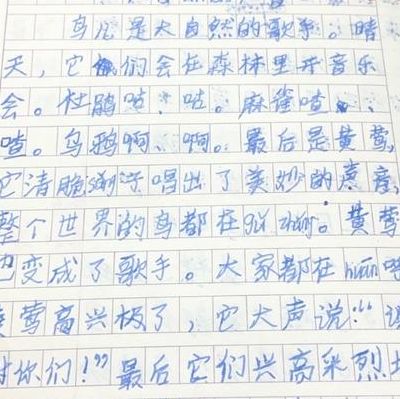 鸟儿是大自然的歌手。晴
天，它们会在森林里开音乐
会。杜鹃咕、咕。麻雀喳、
喳。乌鸦啊、啊。最后是黄莺，
它清脆唱出了美妙的声音，
整个世界的鸟都在gǔ zhǎng。黄莺
也变成了歌手。大家都在
莺高兴极了，它大声说：“
对你们！”最后它们兴高采烈地